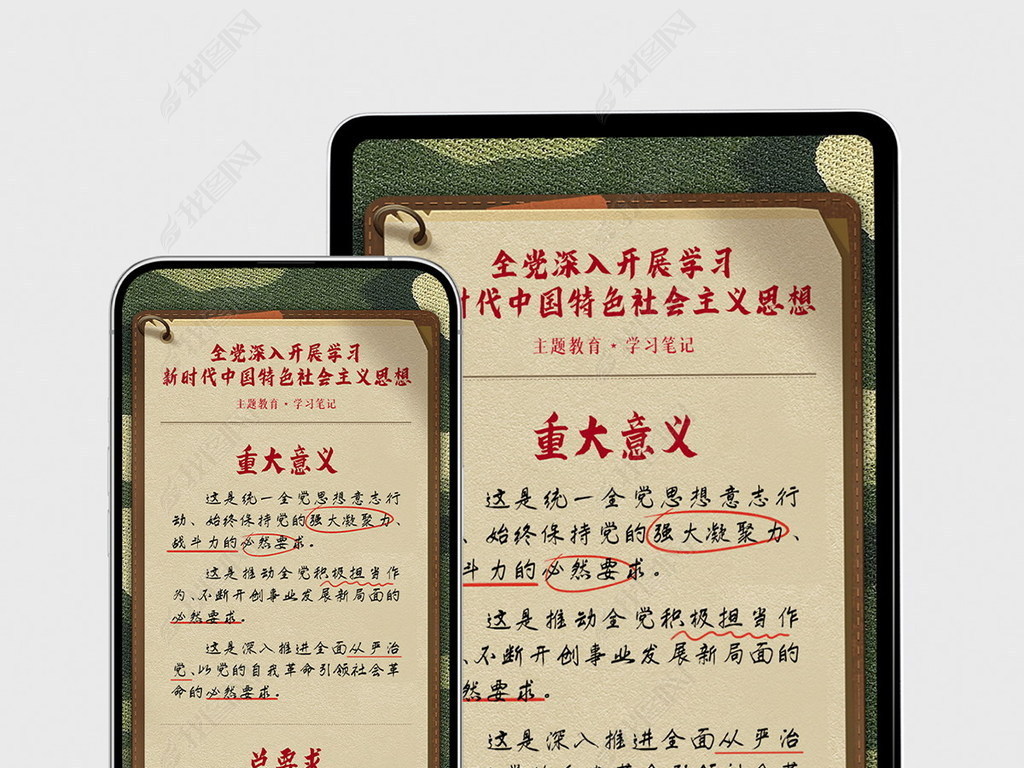 全党深入开展学习
新时代中国特色社会主义思想
主题教育·学习笔记
重大意义
这是统一全党思想意志行
动、始终保持党的强大凝聚力、
战斗力的必然要求。
这是推动全党积极担当作
为、不断开创事业发展新局面的
必然要求。
这是深入推进全面从严治
党、以党的自我革命引领社会革
命的必然要求。
总要求
全党深入开展学习
时代中国特色社会主义思想
主题教育·学习笔记
重大意义
这是统一全党思想意志行
、始终保持党的强大凝聚力、
斗力的必然要求。
这是推动全党积极担当作
、不断开创事业发展新局面的
然要求。
这是深入推进全面从严治